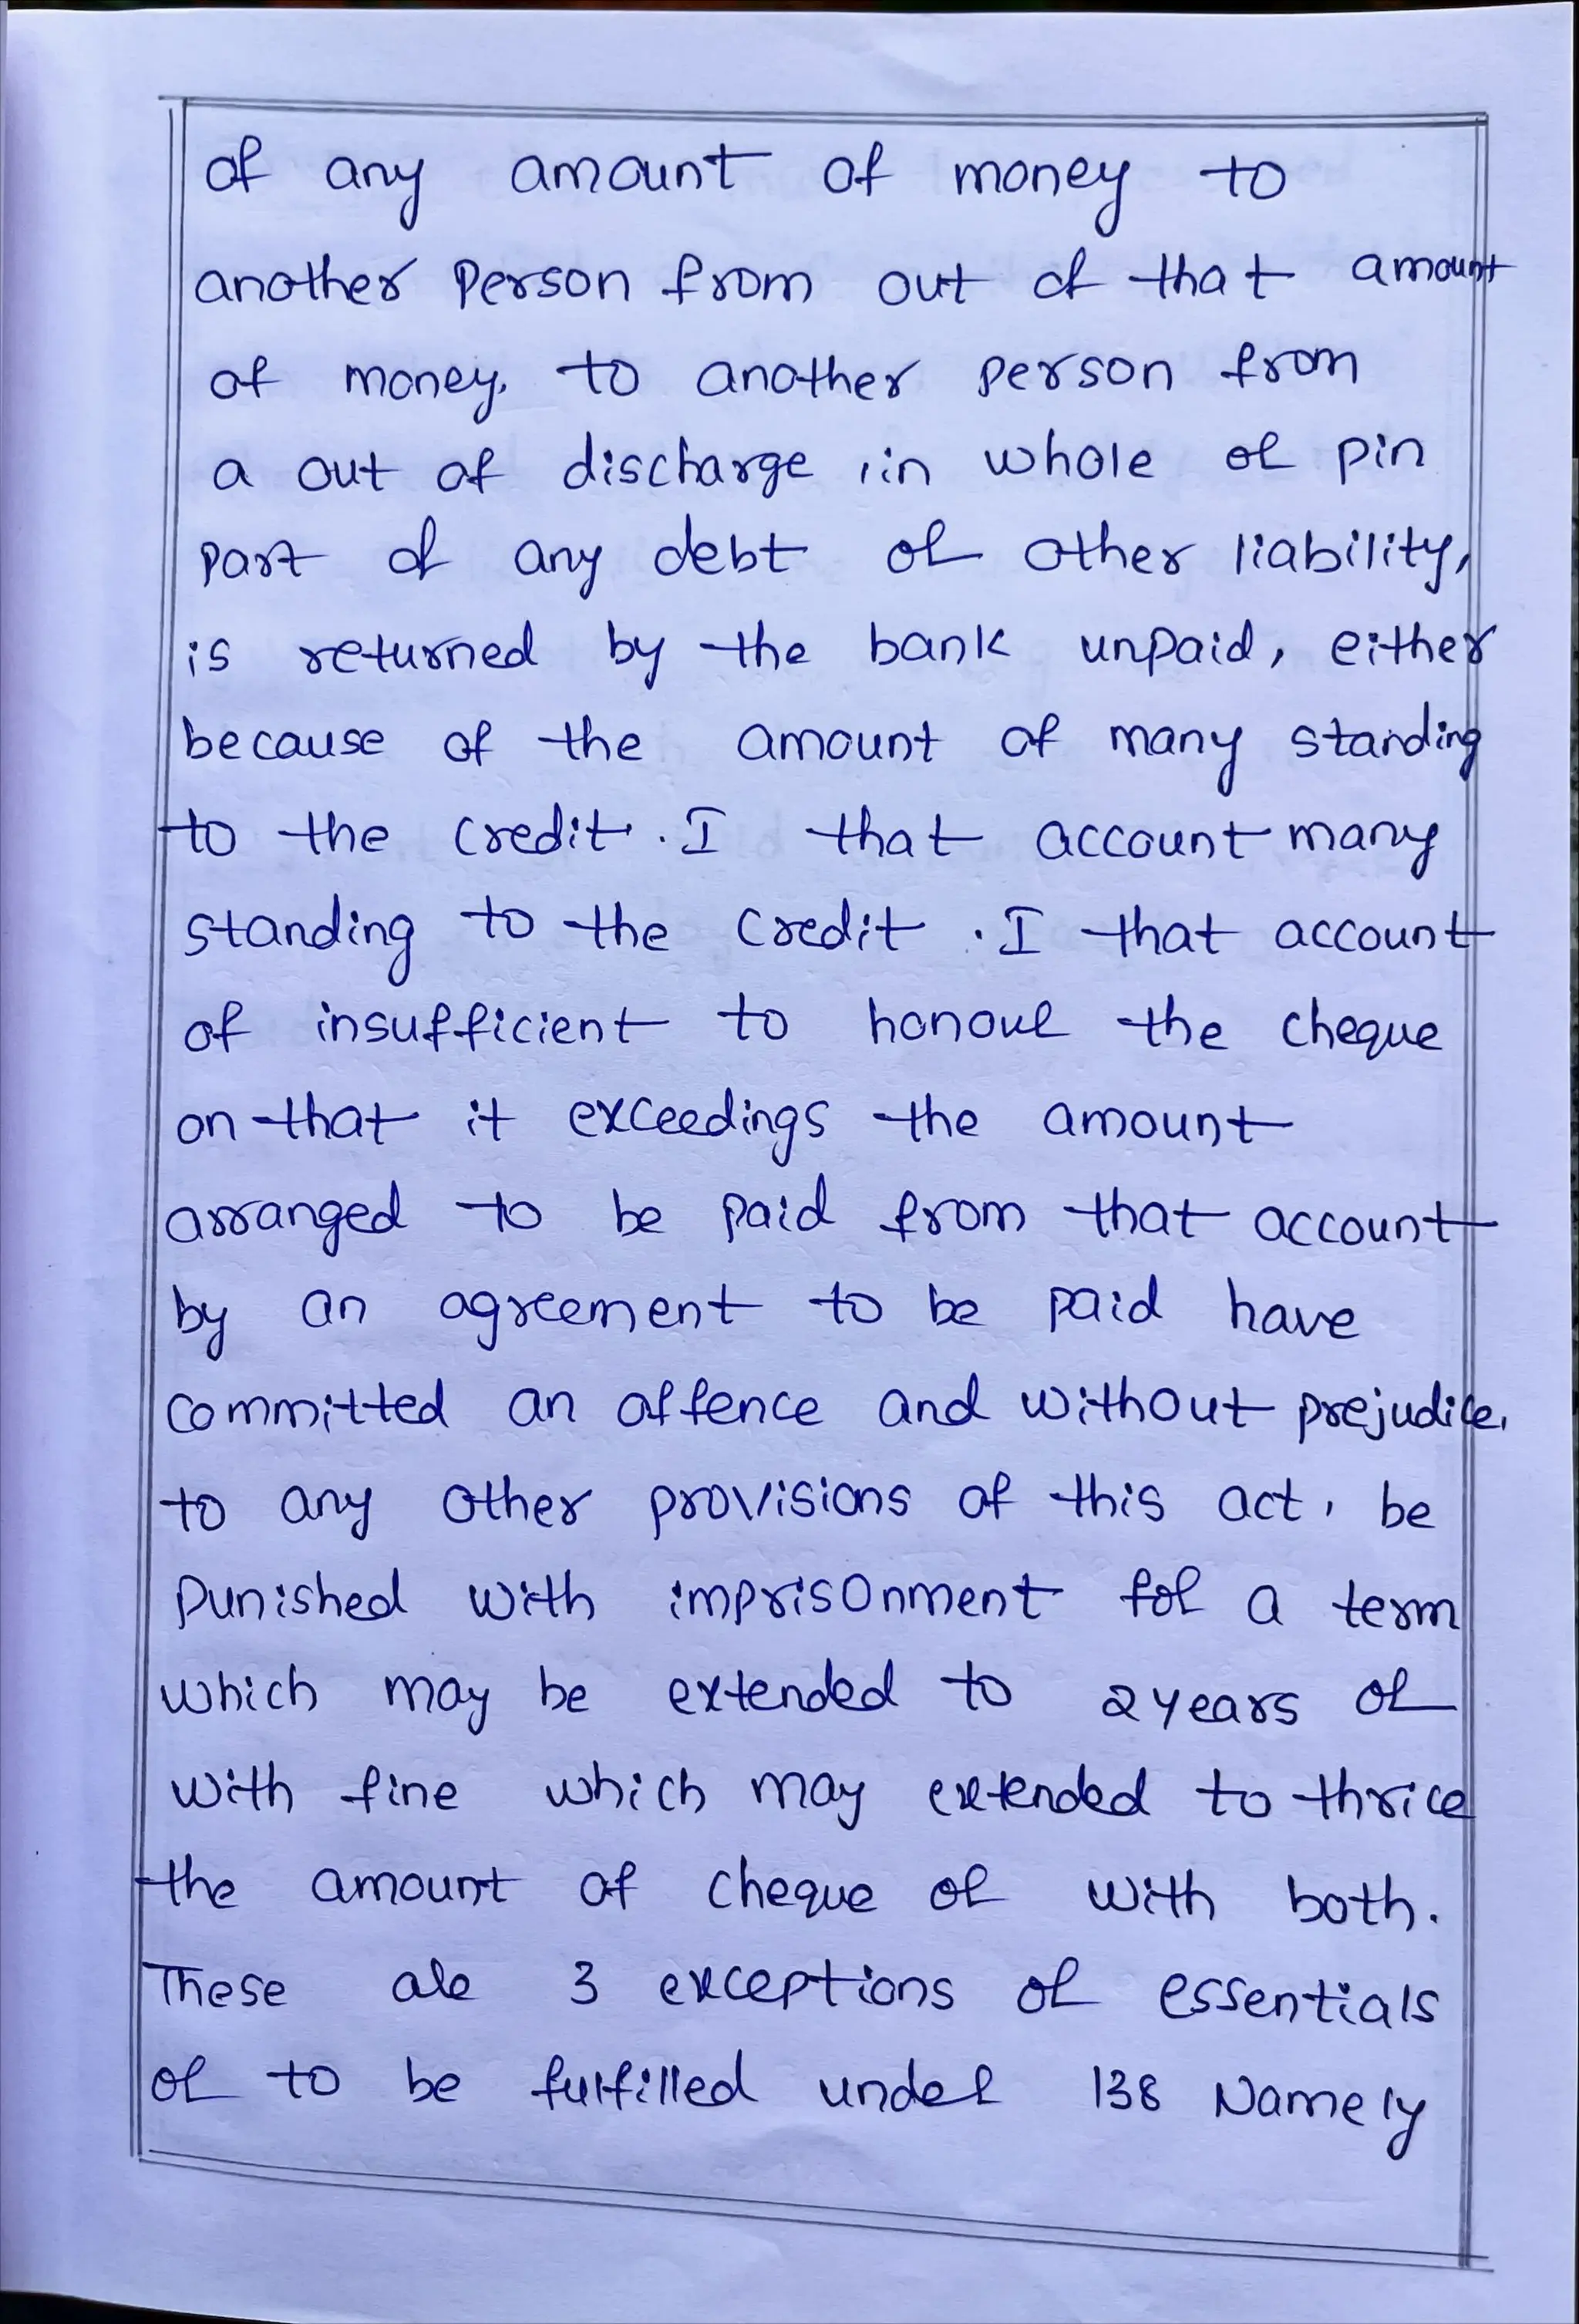 of any amount of money to
another Person from out of that amount
of money, to another person from
a out of discharge, in whole or pin
part of any debt or other liability,
is returned by the bank unpaid, either
because of the amount of many standing
to the credit. I that account many
standing to the credit. I that account
of insufficient to honour the cheque
on that it exceedings the amount
arranged to be paid from that account
by an agreement to be paid have
committed an offence and without prejudice,
to any other provisions of this act, be
Punished with imprisonment for a term
which may be extended to 2 years or
with fine which may extended to thrice
the amount of cheque or with both.
These are 3 exceptions or essentials
or to be fulfilled under 138 Namely